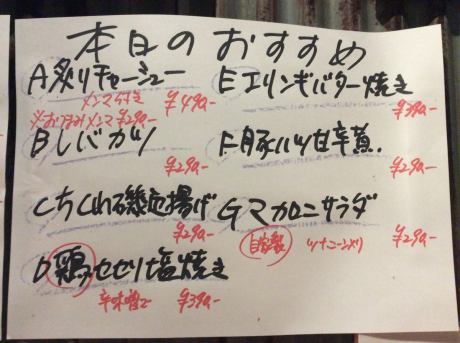 本日のおすすめ
A炙りチャーシュー
メンマ付き ¥490-
※おつまみメンマ ¥290-
Bレバカツ
¥290-
Cちくわ磯辺揚げ
¥290-
D鶏セセリ塩焼き
辛味噌で ¥390-
Eエリンギバター焼き
¥390-
F豚ハツ甘辛煮.
¥290-
Gマカロニサラダ
自家製 ツナコーン入り ¥290-